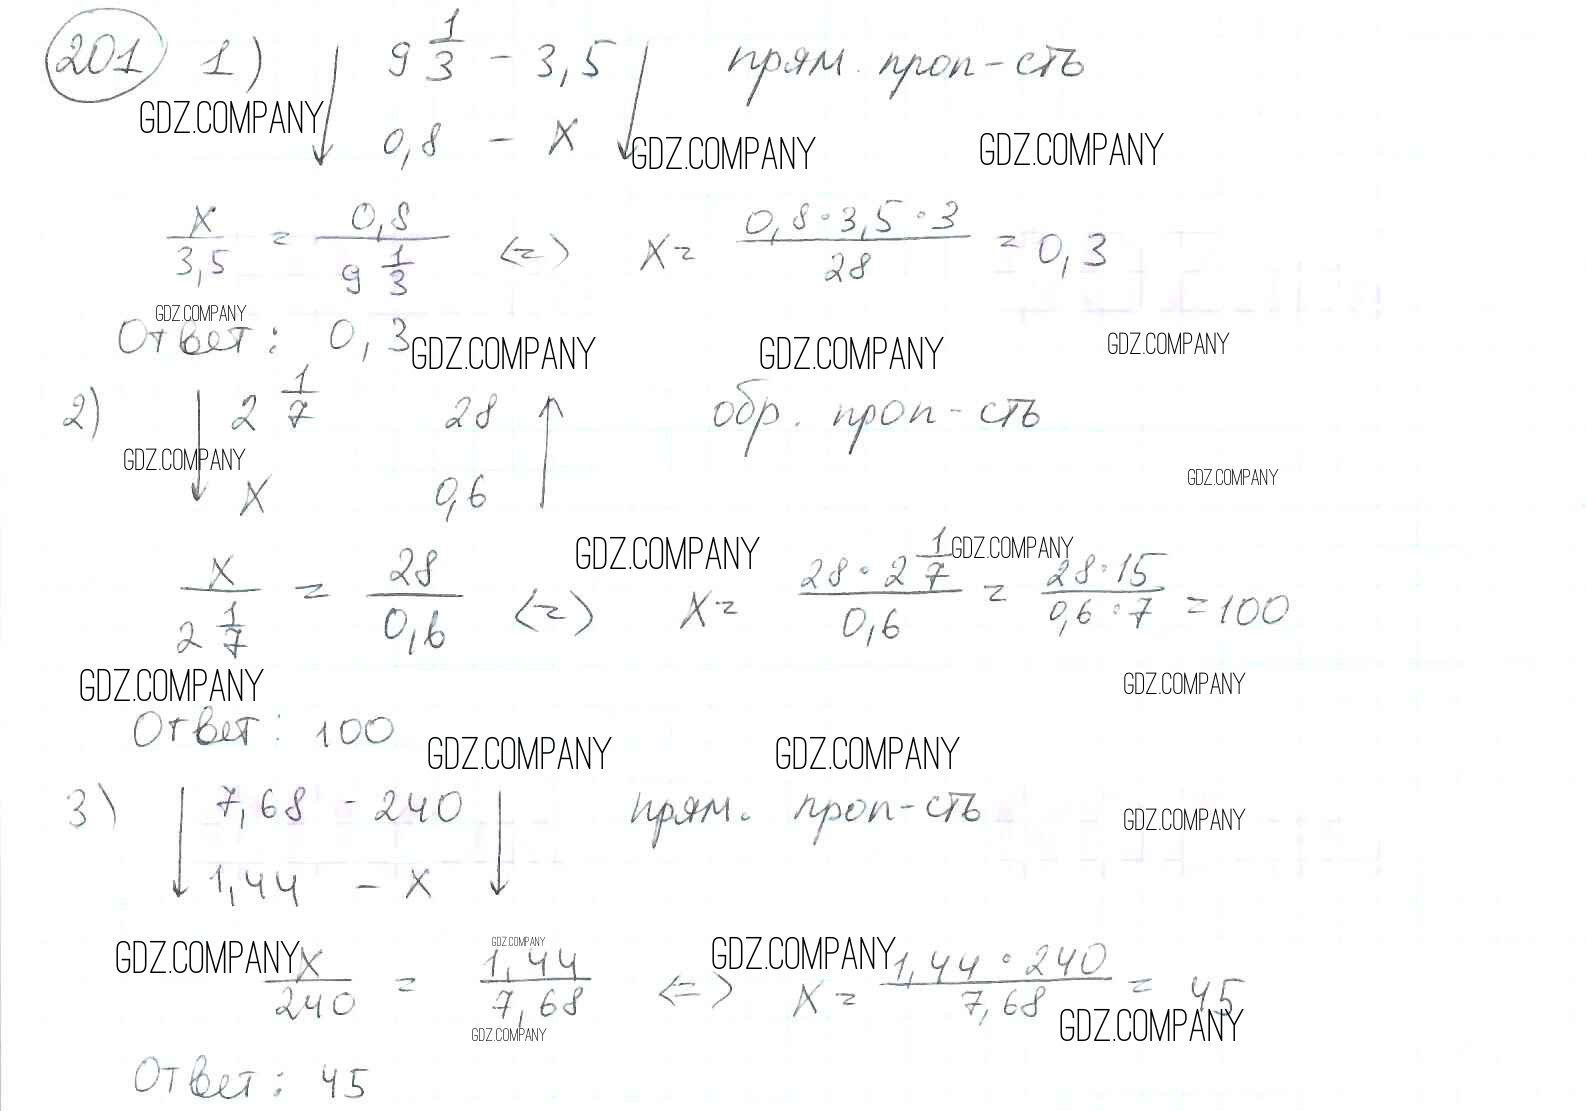 201 1) 9 1/3 - 3,5 прям. проп-сть
GDZ.COMPANY
0,8 - x
GDZ.COMPANY GDZ.COMPANY
x/3,5 = 0,8/(9 1/3) <=> x = (0,8·3,5·3)/28 = 0,3
GDZ.COMPANY
Ответ: 0,3
GDZ.COMPANY GDZ.COMPANY GDZ.COMPANY
2) 2 1/7 28 обр. проп-сть
GDZ.COMPANY GDZ.COMPANY
x 0,6
GDZ.COMPANY GDZ.COMPANY
x/(2 1/7) = 28/0,6 <=> x = (28·2 1/7)/0,6 = (28·15)/(0,6·7) = 100
GDZ.COMPANY GDZ.COMPANY
Ответ: 100
GDZ.COMPANY GDZ.COMPANY
3) 7,68 - 240 прям. проп-сть
GDZ.COMPANY
1,44 - x
GDZ.COMPANY GDZ.COMPANY GDZ.COMPANY
x/240 = 1,44/7,68 <=> x = (1,44·240)/7,68 = 45
GDZ.COMPANY GDZ.COMPANY
Ответ: 45